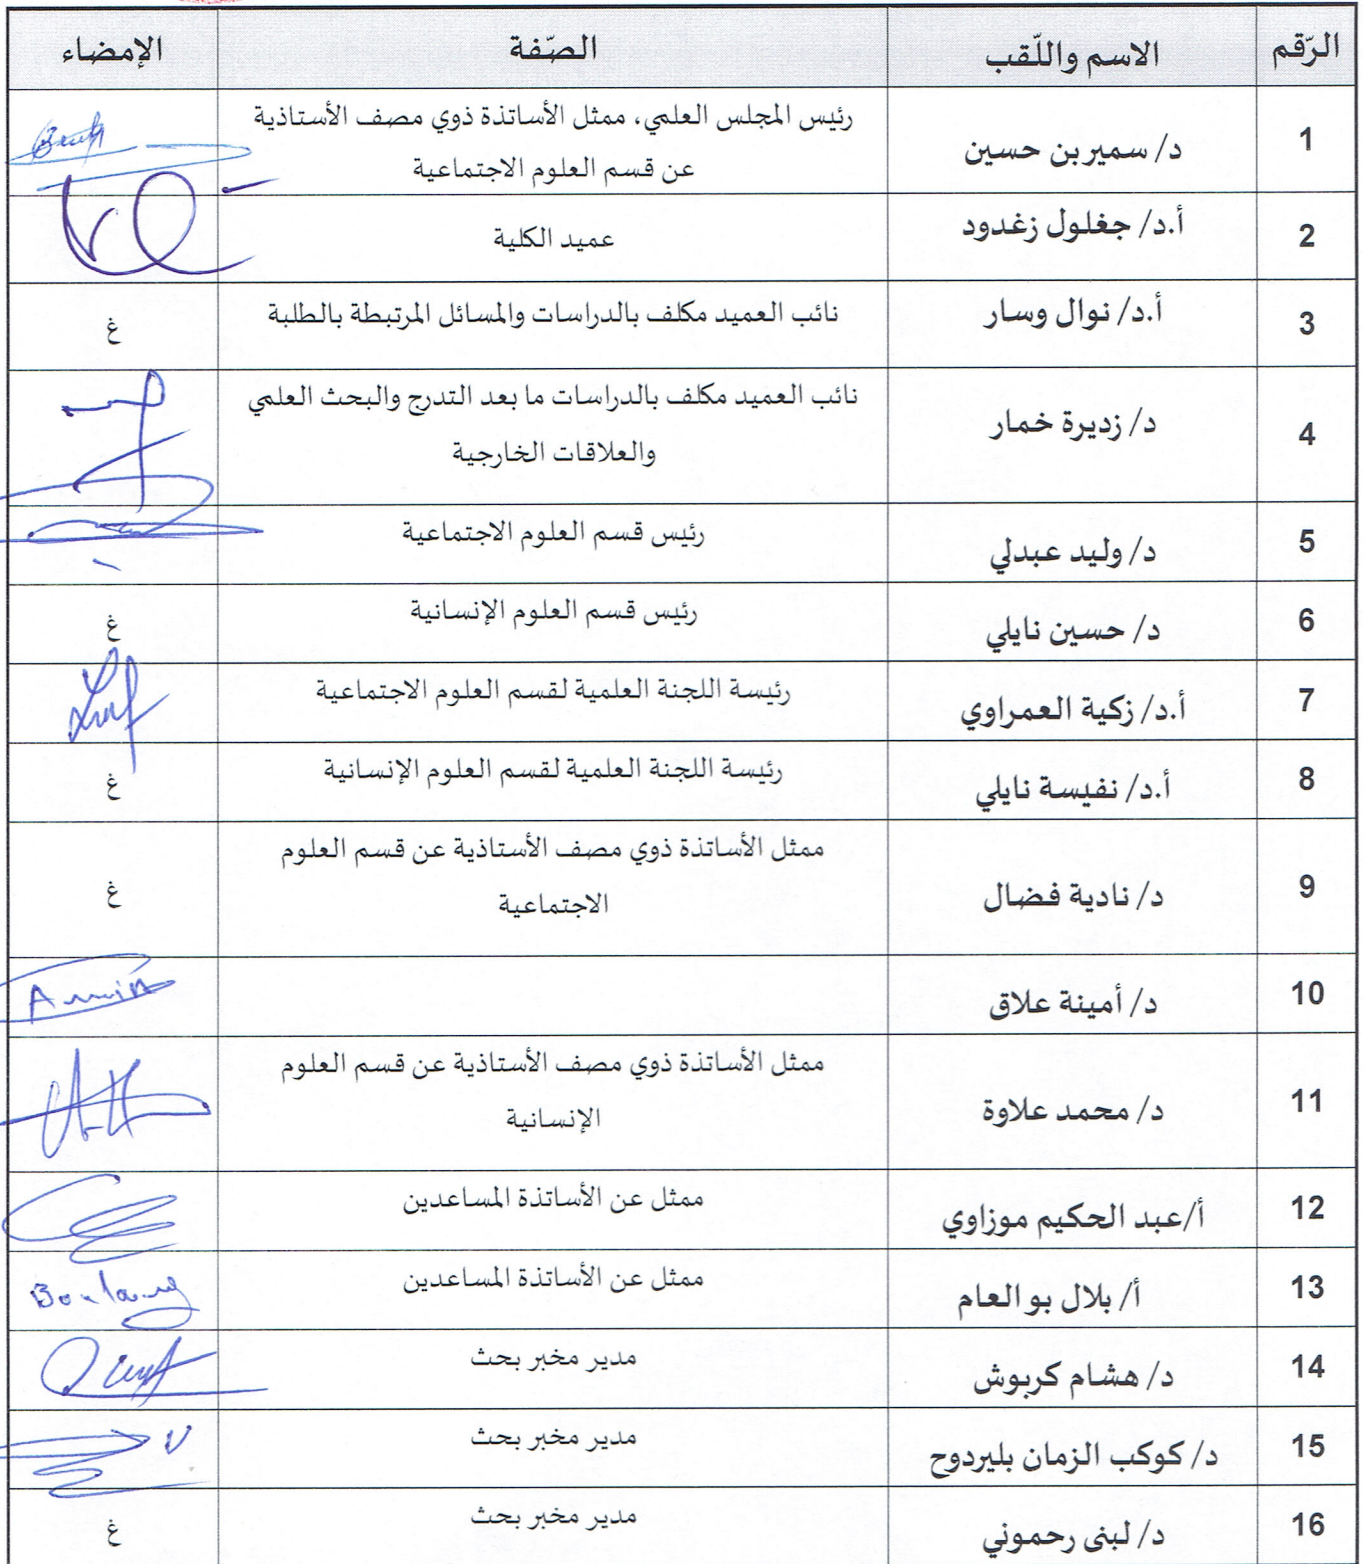 الرّقم الاسم واللّقب الصّفة الإمضاء
1 د/ سمير بن حسين رئيس المجلس العلمي، ممثل الأساتذة ذوي مصف الأستاذية
عن قسم العلوم الاجتماعية
2 أ.د/ جغلول زغدود عميد الكلية
3 أ.د/ نوال وسار نائب العميد مكلف بالدراسات والمسائل المرتبطة بالطلبة غ
4 د/ زديرة خمار نائب العميد مكلف بالدراسات ما بعد التدرج والبحث العلمي
والعلاقات الخارجية
5 د/ وليد عبدلي رئيس قسم العلوم الاجتماعية
6 د/ حسين نايلي رئيس قسم العلوم الإنسانية غ
7 أ.د/ زكية العمراوي رئيسة اللجنة العلمية لقسم العلوم الاجتماعية
8 أ.د/ نفيسة نايلي رئيسة اللجنة العلمية لقسم العلوم الإنسانية غ
9 د/ نادية فضال ممثل الأساتذة ذوي مصف الأستاذية عن قسم العلوم
الاجتماعية غ
10 د/ أمينة علاق
11 د/ محمد علاوة ممثل الأساتذة ذوي مصف الأستاذية عن قسم العلوم
الإنسانية
12 أ/عبد الحكيم موزاوي ممثل عن الأساتذة المساعدين
13 أ/ بلال بو العام ممثل عن الأساتذة المساعدين
14 د/ هشام كربوش مدير مخبر بحث
15 د/ كوكب الزمان بليردوح مدير مخبر بحث
16 د/ لبنى رحموني مدير مخبر بحث غ